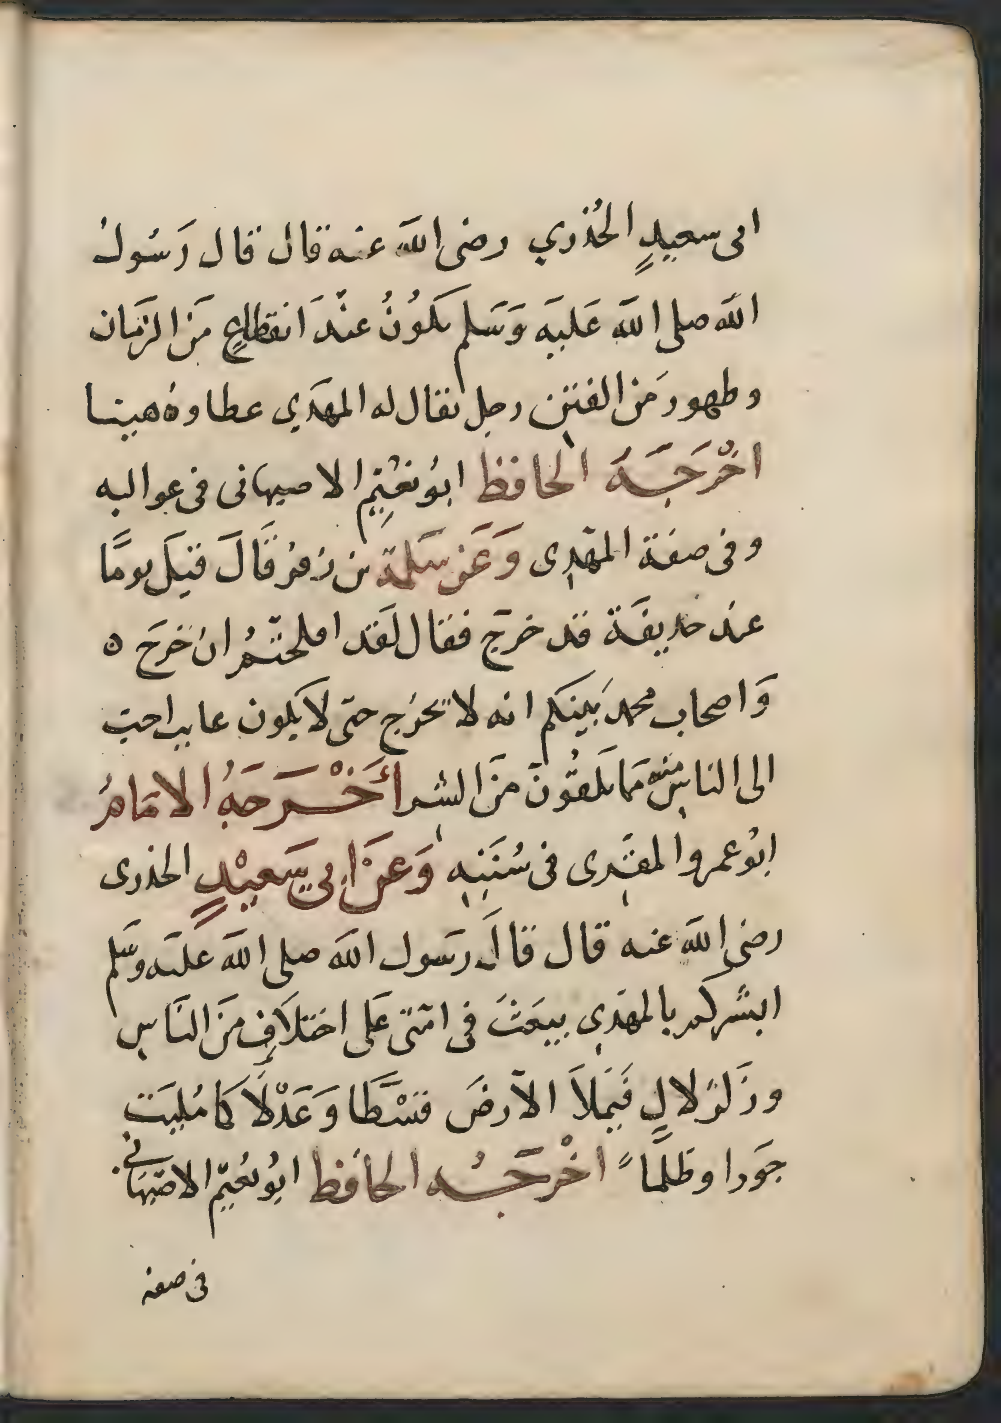 ابى سعيدٍ الخُذري رضى الله عنه قال قال رَسُول
الله صلى الله عَليَه وَسَلم يكوُنُ عنّدَ انقطاعٍ مَن الزمَان
وظهور مَن الفتن رجل يقال له المهَدي عطاوهُ هينا
اخْرَجَهَ الحافظ ابوُ نعَيْم الاصبهانى فى عواليه
وفى صفة المهّدِى وَعَن سَلمة بن زفرُ قَالَ قيَل يومًا
عند حذيفَة قد خرَج فقال لَقد افلحتّمُ ان خرَجَ ه
وَاصحاب محمد بَينكم انه لا يخرَج حتى لا يكون غايب احب
الى الناسِ منه مَما يَلقُونَ مَن الشر أخَرْجَهُ الامَامُ
ابوُ عمرو المقرِى فى سُنَنِهِ وَعَن ابِي سَعيْدٍ الخذرى
رضى الله عنه قال قالَ رسَول الله صلى الله عَليَه وسَلم
ابشركم بالمهَدِي يبعَثَ فى امتّى عَلى اختلاَفٍ مَن النَاسِ
وزَلزلالٍ فَيَملاَ الاَرضَ قسْطًا وَعَدْلًا كما مُليَت
جَورا وظلمًا اخْرجَهُ الحافظ ابوُ نعُيَم الاصبَهانى
فى صفة